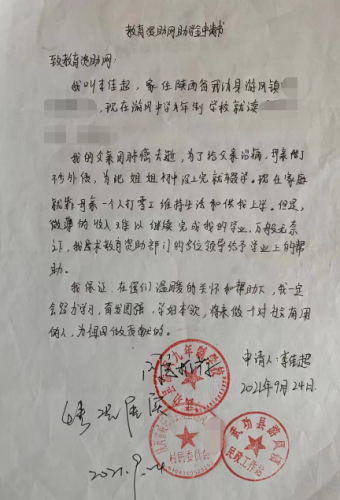 教育资助网助学金申请书
致教育资助网:
我叫李佳超,家住陕西省武功县游风镇
,现在游风中学九年制学校就读
我的父亲因肺癌去逝,为了给父亲治病,母亲借了
不少外债,为此姐姐初中没上完就辍学。现在家庭
就靠母亲一个人打零工维持生活和供我上学。但是,
微薄的收入难以继续完成我的学业,万般无奈
下,我恳求教育资助部门的各位领导给予学业上的帮
助。
我保证,在您们温暖的关怀和帮助下,我一定
会努力学习,奋发图强,学好本领,将来做一个对社会有用
的人,为祖国做贡献的。
申请人:李佳超
2021年9月24日
九年制学校
情况属实
村民委员会
武功县游风镇
民政工作站
2021.9.24